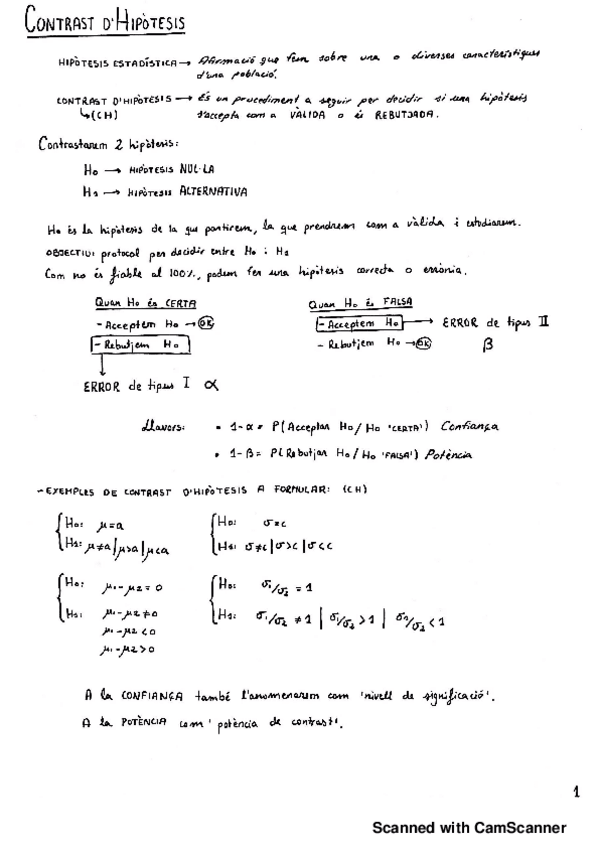 CONTRAST D'HIPÒTESIS
HIPÒTESIS ESTADÍSTICA → Afirmació que fem sobre una o diverses característiques
d'una població.
CONTRAST D'HIPÒTESIS → És un procediment a seguir per decidir si una hipòtesis
↳(CH) s'accepta com a VÀLIDA o és REBUTJADA.
Contrastarem 2 hipòtesis:
H0 → HIPÒTESIS NUL·LA
H1 → HIPÒTESIS ALTERNATIVA
H0 és la hipòtesis de la que partirem, la que prendrem com a vàlida i estudiarem.
OBJECTIU: protocol per decidir entre H0 i H1
Com no és fiable al 100%, podem fer una hipòtesis correcta o errònia.
Quan H0 és CERTA
- Acceptem H0 → OK
- Rebutjem H0
ERROR de tipus I α
Quan H0 és FALSA
- Acceptem H0 → ERROR de tipus II
- Rebutjem H0 → OK β
Llavors: • 1-α = P(Acceptar H0/H0 'CERTA') Confiança
• 1-β = P(Rebutjar H0/H0 'FALSA') Potència
- EXEMPLES DE CONTRAST D'HIPÒTESIS A FORMULAR: (CH)
H0: μ=a
H1: μ≠a|μ>a|μ<a
H0: σ=c
H1: σ≠c|σ>c|σ<c
H0: μ1-μ2 = 0
H1: μ1-μ2 ≠0
μ1-μ2 <0
μ1-μ2 >0
H0: σ1/σ2 = 1
H1: σ1/σ2 ≠ 1 | σ1/σ2 > 1 | σ1/σ2 < 1
A la CONFIANÇA també l'anomenarem com 'nivell de significació'.
A la POTÈNCIA com 'potència de contrast'.
1
Scanned with CamScanner